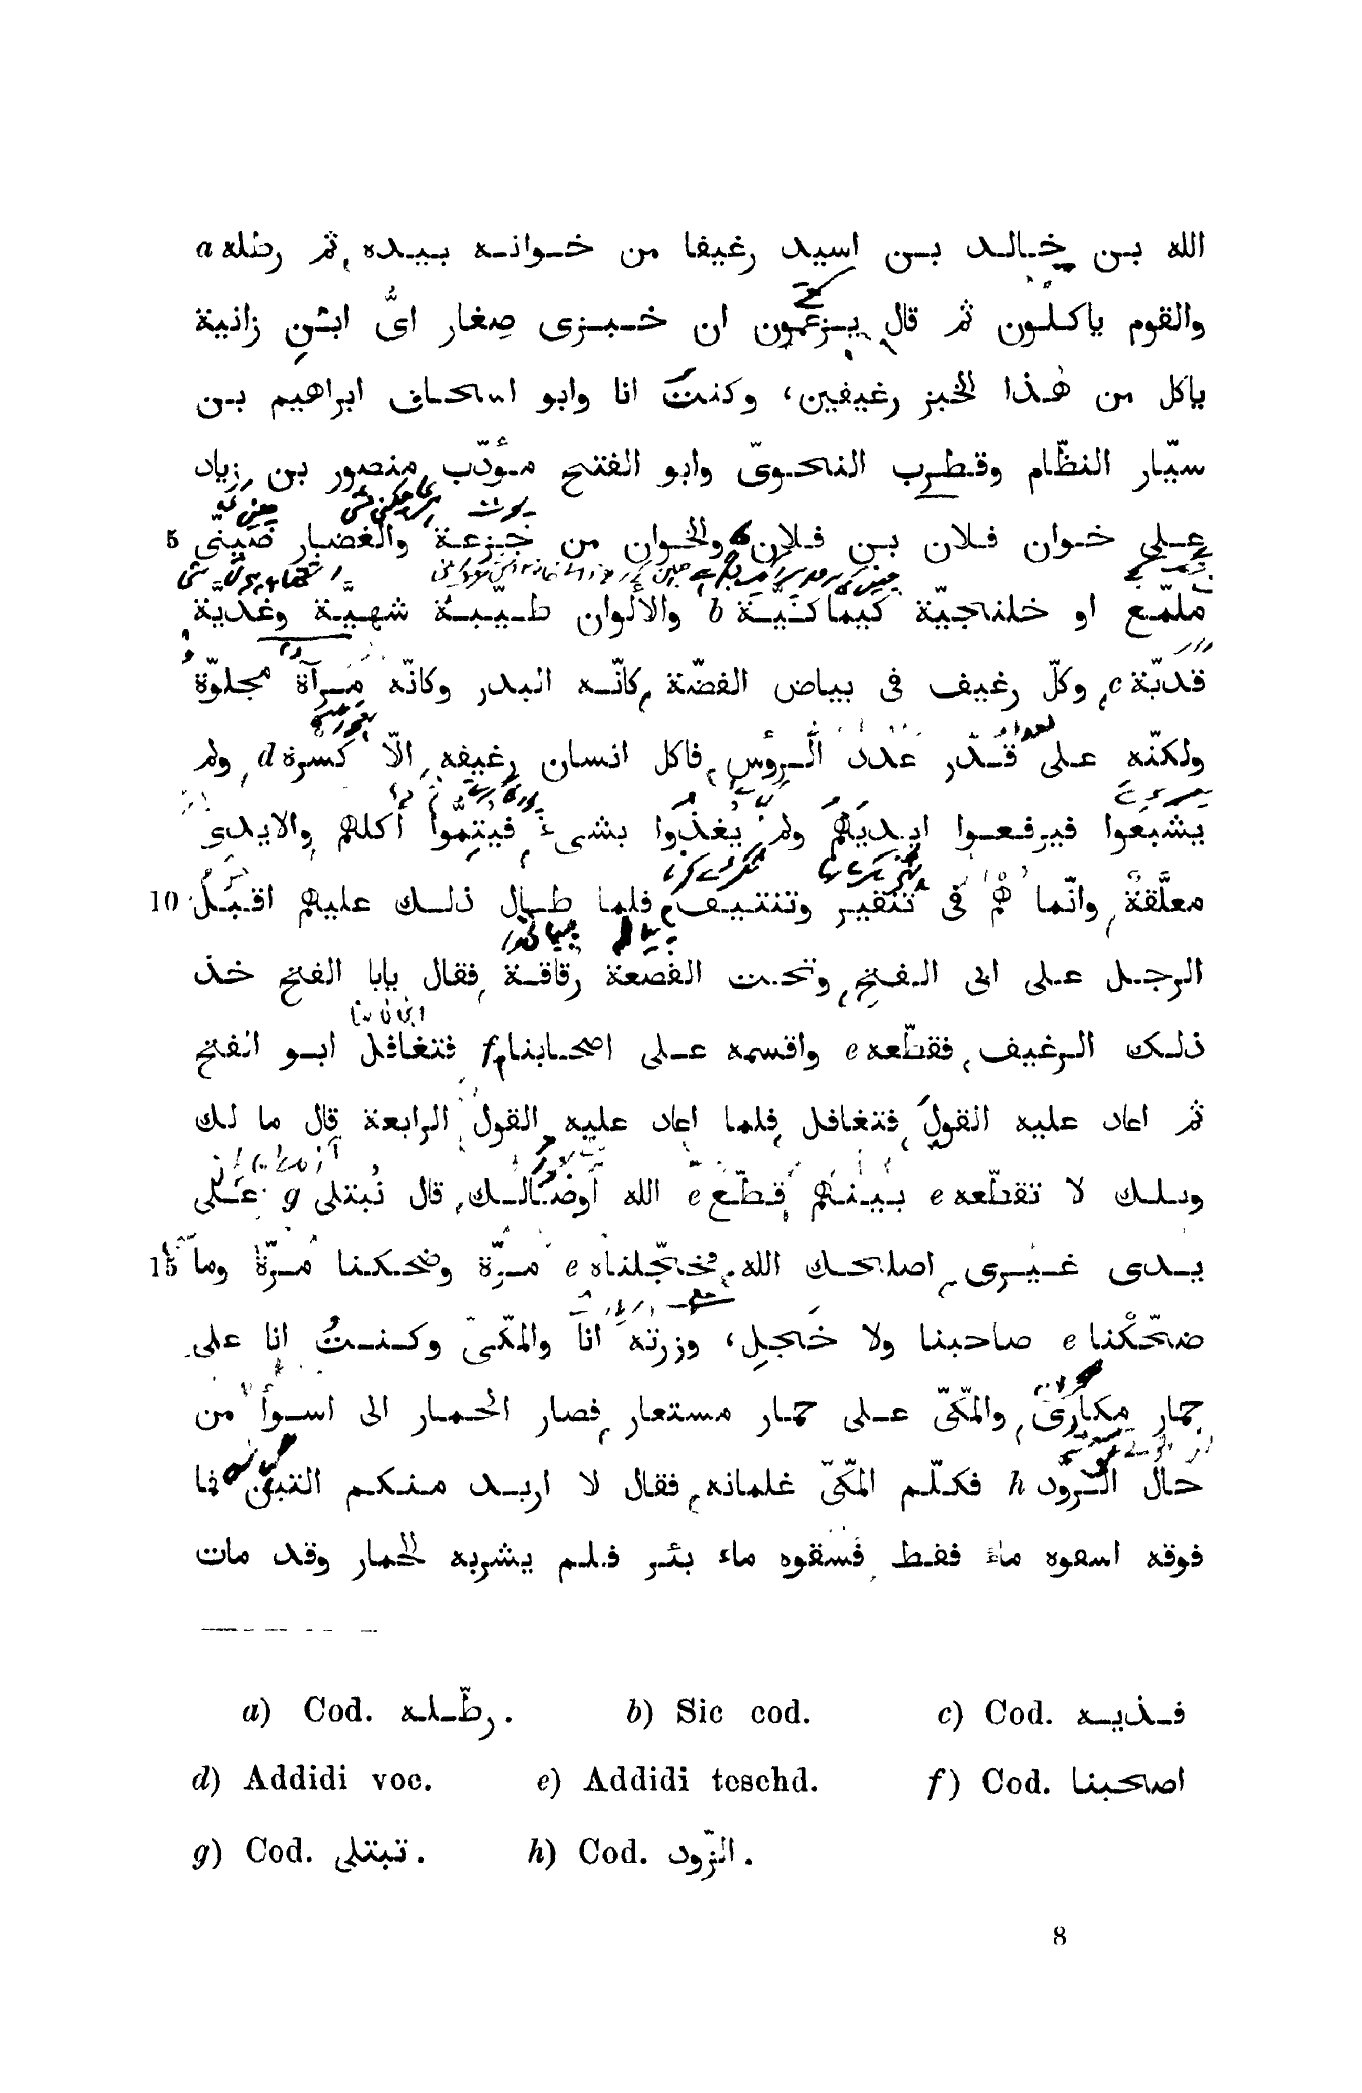 الله بن خالد بن اسيد رغيفا من خوانه بيده ثم رطله a
والقوم ياكلون ثم قال يزعمون ان خبزى صغار اىّ ابن زانية
ياكل من هذا الخبز رغيفين، وكنت انا وابو اسحاق ابراهيم بن
سيّار النظّام وقطرب النحوىّ وابو الفتح مؤدّب منصور بن زياد
5 على خوان فلان بن فلان والخوان من جزعة والغضار صينى
ملمّع او خلنجيّة كيماكيّة b والالوان طيّبة شهيّة وغذيّة
قديّة c وكلّ رغيف فى بياض الفضّة كانّه البدر وكانّه مرآة مجلوّة
ولكنّه على قدر عدد الرؤس فاكل انسان رغيفه الّا كسرة d ولم
يشبعوا فيرفعوا ايديهم ولم يغذوا بشىء فيتمّوا أكلهم والايدى
10 معلّقة وانّما هم فى تنقير وتنتيف فلما طال ذلك عليهم اقبل
الرجل على ابى الفتح وتحت القصعة رقاقة فقال يابا الفتح خذ
ذلك الرغيف فقطّعه e واقسمه على اصحابنا f فتغافل ابو الفتح
ثم اعاد عليه القول فتغافل فلما اعاد عليه القول الرابعة قال ما لك
ويلك لا تقطّعه e بينهم قطّع e الله أوصالك قال نبتلى g على
15 يدى غيرى اصلحك الله فخجّلناه e مرّة وضحكنا مرّة وما
ضحّكنا e صاحبنا ولا خجل، وزرته انا والمكّى وكنت انا على
حمار مكارى والمكّىّ على حمار مستعار فصار الحمار الى اسوأ من
حال الزّود h فكلّم المكّىّ غلمانه فقال لا اريد منكم التبن فما
فوقه اسقوه ماء فقط فسقوه ماء بئر فلم يشربه الحمار وقد مات
a) Cod. رطّله. b) Sic cod. c) Cod. فذيه
d) Addidi voc. e) Addidi teschd. f) Cod. اصحبنا
g) Cod. تبتلى. h) Cod. الزّود.
8